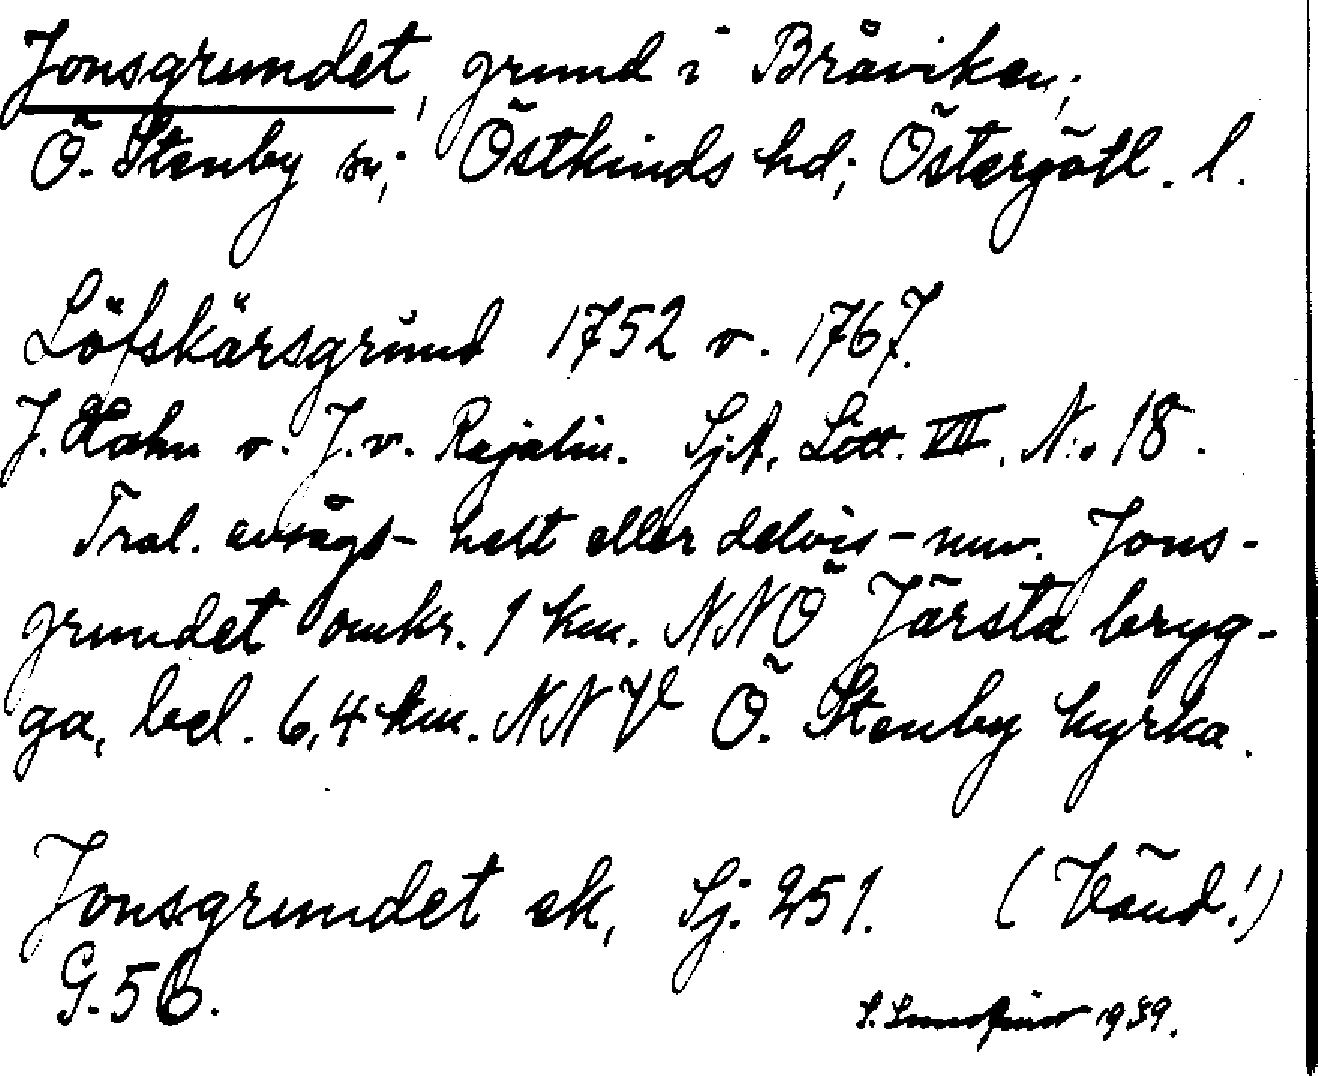 Jonsgrundet, grund i Bråviken;
Ö. Stenby sn; Östkinds hd; Östergötl. l.
Löfskärsgrund 1752 o. 1767.
J. Hahn o. J. v. Rajalin. SjA, Litt. VII, N:o 18.
Trol. avsågs – helt eller delvis – nuv. Jons-
grundet omkr. 1 km. NNÖ Järsta bryg-
ga, bel. 6,4 km. NNV Ö. Stenby kyrka.
Jonsgrundet ek, Sj. 251. (Vänd!)
G. 56.
1939.